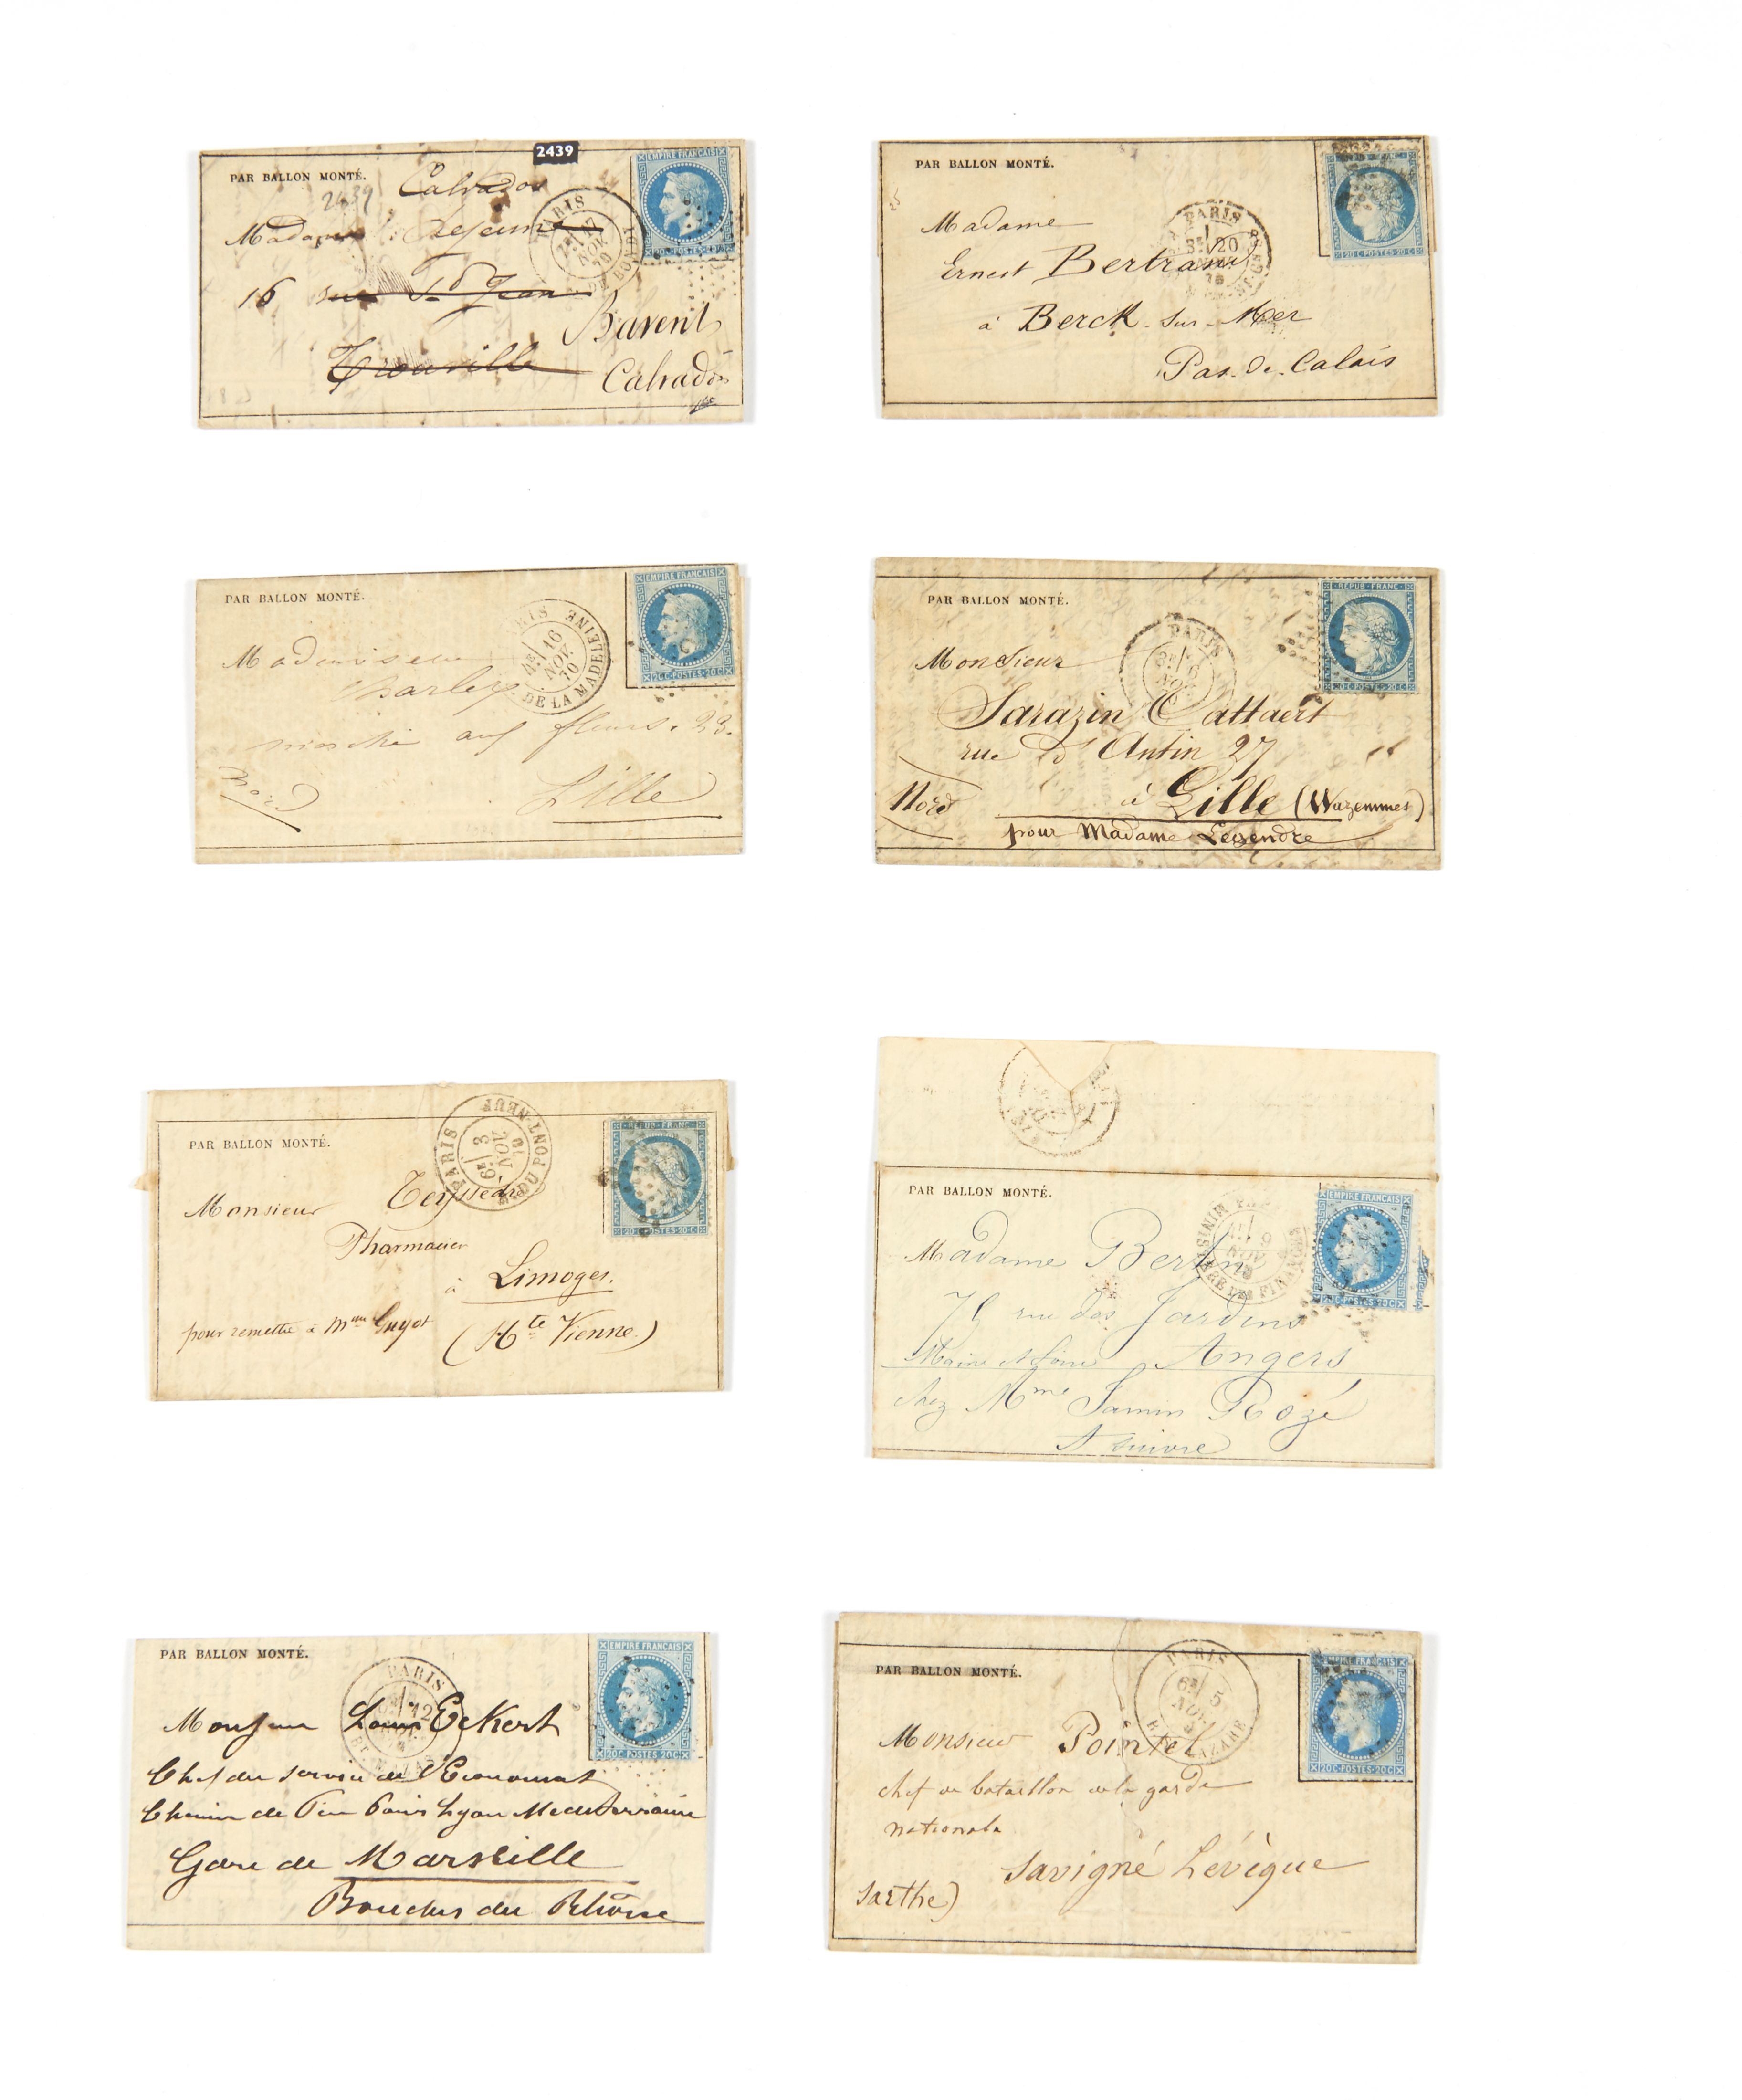 2439
EMPIRE FRANÇAIS
PAR BALLON MONTÉ.
Calvados
2439
Madame Lejeune
PARIS
17
NOV.
70
20 C. POSTES 20 C.
16 rue St Jean
Bavent
Trouville
Calvados
PAR BALLON MONTÉ.
Madame
PARIS
20
Ernest Bertrand
20 C. POSTES 20 C.
à Berck-Sur-Mer
Pas-de-Calais
EMPIRE FRANÇAIS
PAR BALLON MONTÉ.
16
NOV.
70
DE LA MADELEINE
Mademoiselle
20 C. POSTES 20 C.
Charley
marché aux fleurs. 23.
Nord
Lille
REPUB. FRANC.
PAR BALLON MONTÉ.
PARIS
Monsieur
20 C. POSTES 20 C.
Sarazin Cattaert
rue d'Antin 27
Nord
à Lille (Wazemmes)
pour Madame Legendre
PAR BALLON MONTÉ.
PARIS
6E 3
NOV.
70
R. DU PONT-NEUF
REPUB. FRANC.
Monsieur Teyssèdre
20 C. POSTES 20 C.
Pharmacien
à Limoges.
pour remettre à Mme Guyot
(Hte Vienne)
PAR BALLON MONTÉ.
EMPIRE FRANÇAIS
FINANCES
Madame Bertin
20 C. POSTES 20 C.
rue des Jardins
Maine et Loire Angers
chez Mme Jamin Rozé
A suivre
PAR BALLON MONTÉ.
EMPIRE FRANÇAIS
PARIS
12
Monsieur Louis Eckert
20 C. POSTES 20 C.
Chef du service de l'Economat
Chemin de Fer Paris Lyon Mediterranée
Gare de Marseille
Bouches du Rhône
EMPIRE FRANÇAIS
PAR BALLON MONTÉ.
PARIS
6E 5
NOV.
R. ST LAZARE
Monsieur Pointel
20 C. POSTES 20 C.
chef de bataillon de la garde
nationale
Savigné Lévêque
Sarthe)